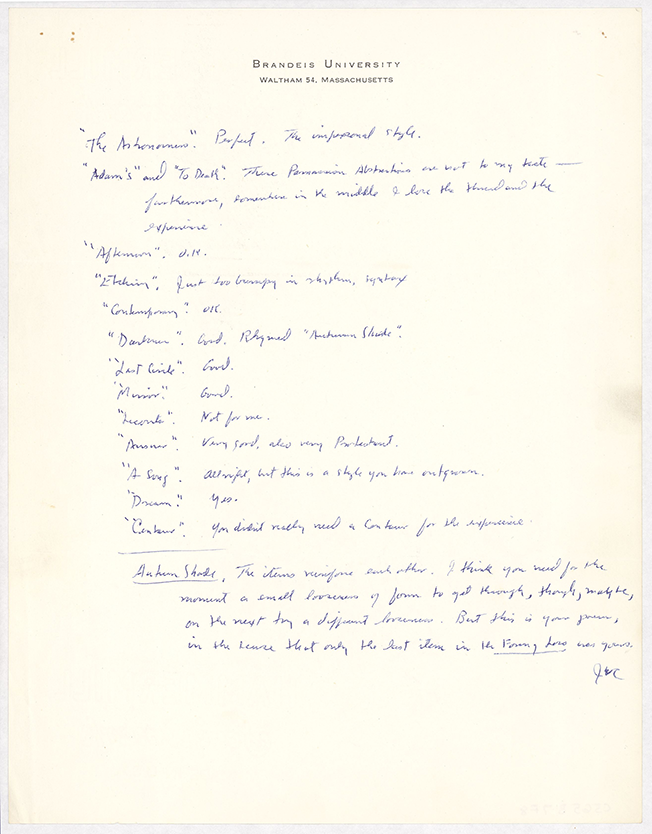 BRANDEIS UNIVERSITY
WALTHAM 54, MASSACHUSETTS
"The Astronomers". Perfect. The impersonal style.
"Adam's" and "To Death". These Abstractions are not to my taste —
furthermore, somewhere in the middle I lose the thread and the
experience.
"Afternoon". O.K.
"Etching". Just too bumpy in rhythm, syntax
"Contemporary". OK.
"Darkness". Good. Rhymed "Autumn Shade".
"Last Circle". Good.
"Mirror". Good.
Not for me.
"Answer". Very good, also very Protestant.
"A Song". Allright, but this is a style you have outgrown.
"Dream". Yes.
"Centaur". You didn't really need a Centaur for the experience.
Autumn Shade, The items reinforce each other. I think you need for the
moment a small looseness of form to get through, though, maybe,
on the next try a different looseness. But this is your poem,
in the sense that only the last item in the Young Loss was yours.
JVC